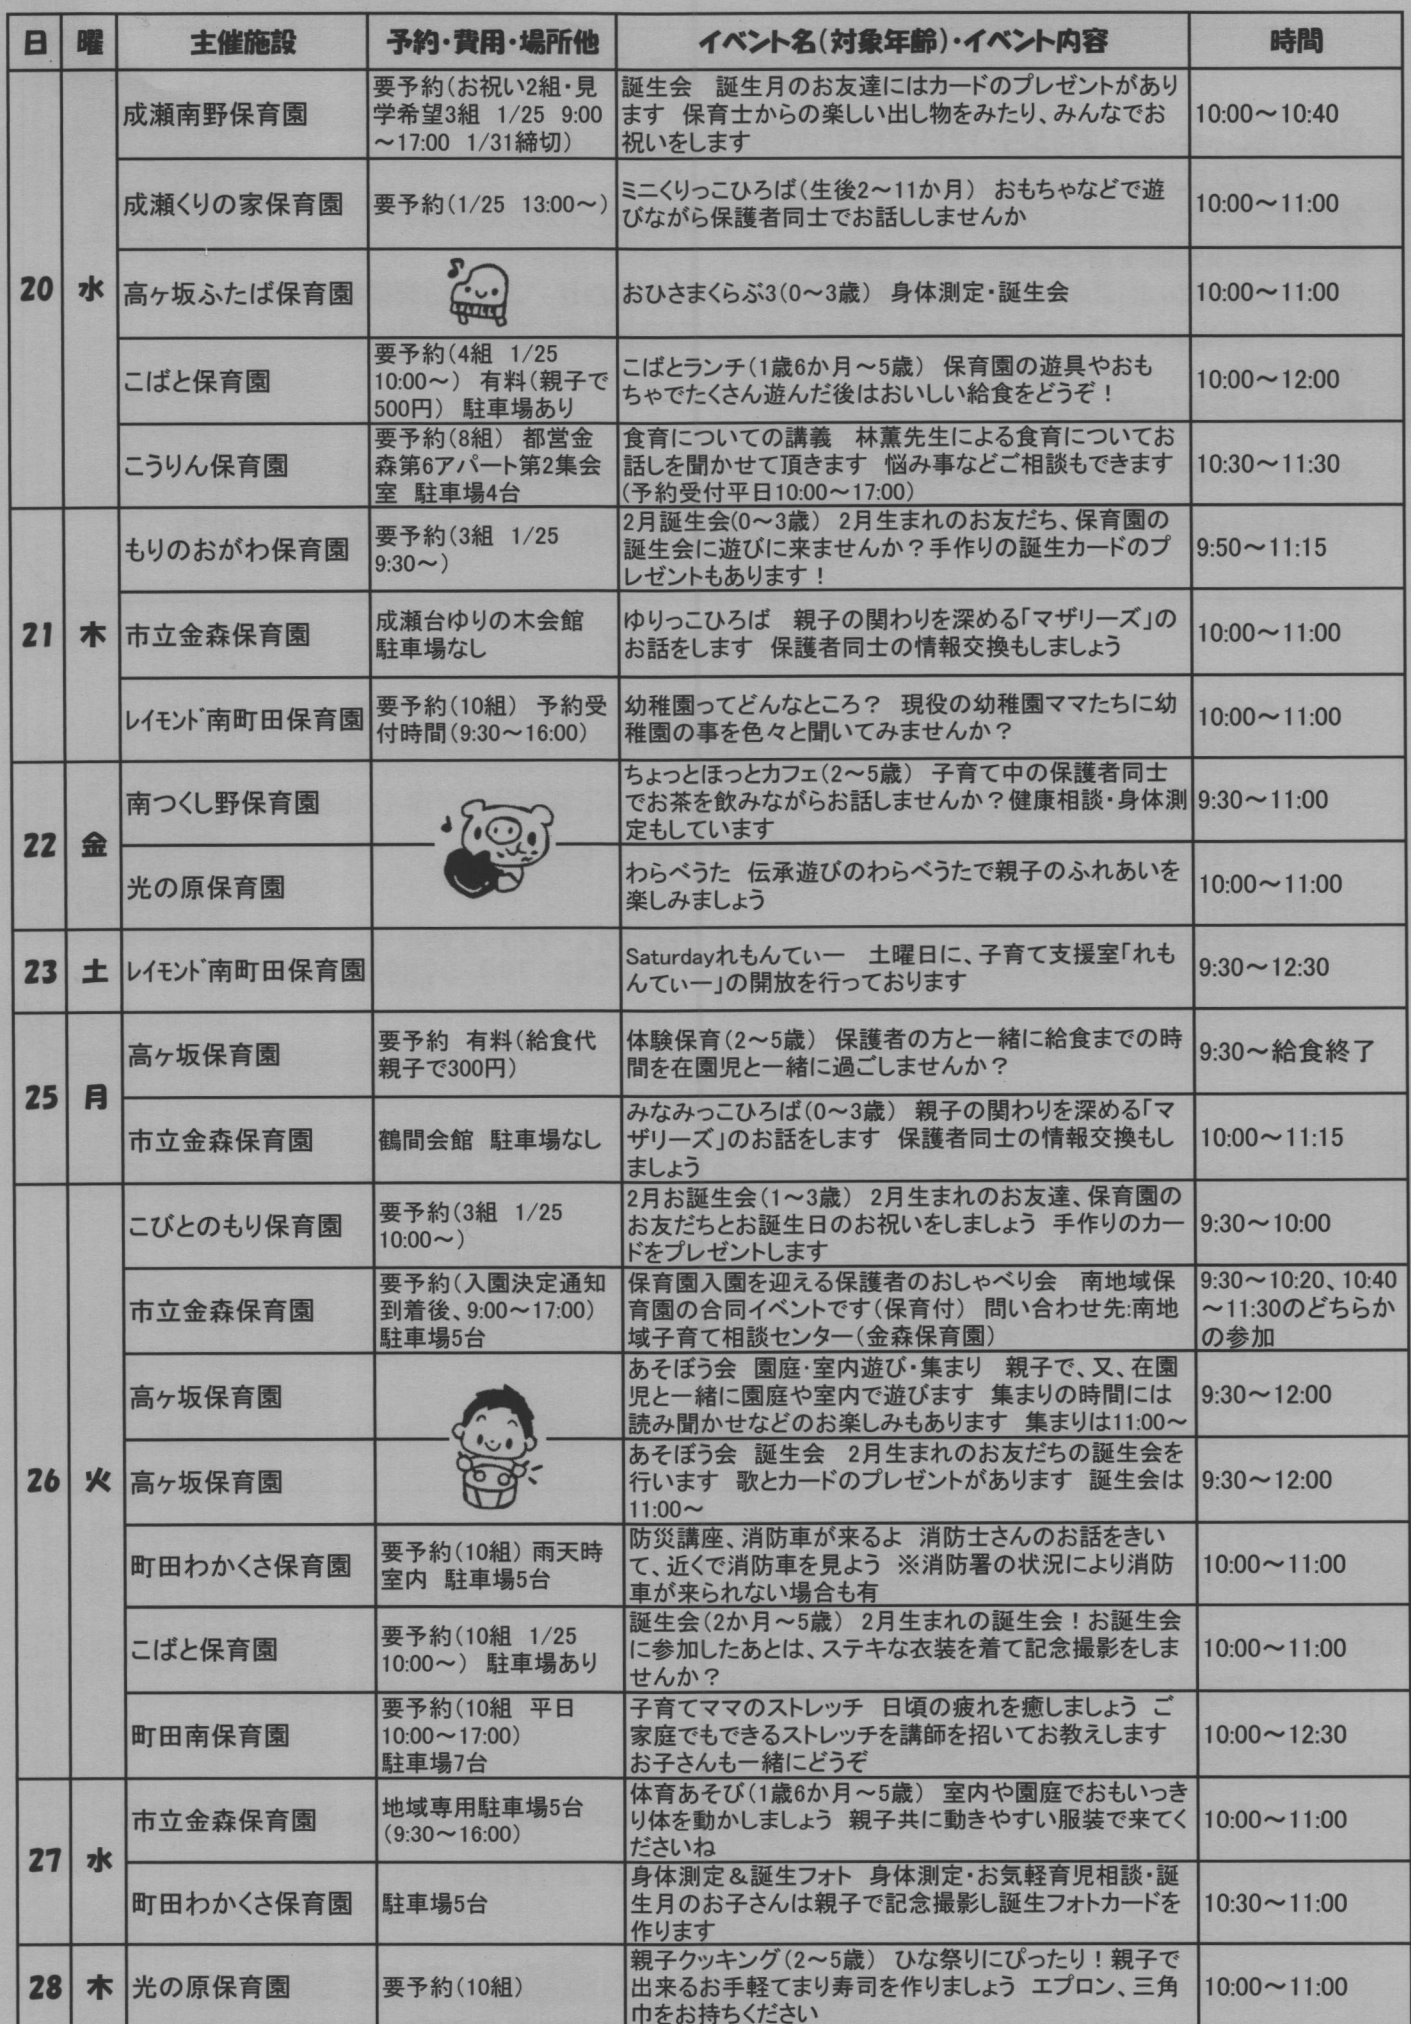 日 曜 主催施設 予約・費用・場所他 イベント名(対象年齢)・イベント内容 時間
20 水
成瀬南野保育園
要予約(お祝い2組・見
学希望3組 1/25 9:00
～17:00 1/31締切)
誕生会 誕生月のお友達にはカードのプレゼントがあり
ます 保育士からの楽しい出し物をみたり、みんなでお
祝いをします
10:00～10:40
成瀬くりの家保育園
要予約(1/25 13:00～)
ミニくりっこひろば(生後2～11か月) おもちゃなどで遊
びながら保護者同士でお話ししませんか
10:00～11:00
高ヶ坂ふたば保育園
おひさまくらぶ3(0～3歳) 身体測定・誕生会
10:00～11:00
こばと保育園
要予約(4組 1/25
10:00～) 有料(親子で
500円) 駐車場あり
こばとランチ(1歳6か月～5歳) 保育園の遊具やおも
ちゃでたくさん遊んだ後はおいしい給食をどうぞ！
10:00～12:00
こうりん保育園
要予約(8組) 都営金
森第6アパート第2集会
室 駐車場4台
食育についての講義 林薫先生による食育についてお
話しを聞かせて頂きます 悩み事などご相談もできます
(予約受付平日10:00～17:00)
10:30～11:30
21 木
もりのおがわ保育園
要予約(3組 1/25
9:30～)
2月誕生会(0～3歳) 2月生まれのお友だち、保育園の
誕生会に遊びに来ませんか？手作りの誕生カードのプ
レゼントもあります！
9:50～11:15
市立金森保育園
成瀬台ゆりの木会館
駐車場なし
ゆりっこひろば 親子の関わりを深める「マザリーズ」の
お話をします 保護者同士の情報交換もしましょう
10:00～11:00
レイモンド南町田保育園
要予約(10組) 予約受
付時間(9:30～16:00)
幼稚園ってどんなところ？ 現役の幼稚園ママたちに幼
稚園の事を色々と聞いてみませんか？
10:00～11:00
22 金
南つくし野保育園
ちょっとほっとカフェ(2～5歳) 子育て中の保護者同士
でお茶を飲みながらお話しませんか？健康相談・身体測
定もしています
9:30～11:00
光の原保育園
わらべうた 伝承遊びのわらべうたで親子のふれあいを
楽しみましょう
10:00～11:00
23 土
レイモンド南町田保育園
Saturdayれもんてぃー 土曜日に、子育て支援室「れも
んてぃー」の開放を行っております
9:30～12:30
25 月
高ヶ坂保育園
要予約 有料(給食代
親子で300円)
体験保育(2～5歳) 保護者の方と一緒に給食までの時
間を在園児と一緒に過ごしませんか？
9:30～給食終了
市立金森保育園
鶴間会館 駐車場なし
みなみっこひろば(0～3歳) 親子の関わりを深める「マ
ザリーズ」のお話をします 保護者同士の情報交換もし
ましょう
10:00～11:15
26 火
こびとのもり保育園
要予約(3組 1/25
10:00～)
2月お誕生会(1～3歳) 2月生まれのお友達、保育園の
お友だちとお誕生日のお祝いをしましょう 手作りのカー
ドをプレゼントします
9:30～10:00
市立金森保育園
要予約(入園決定通知
到着後、9:00～17:00)
駐車場5台
保育園入園を迎える保護者のおしゃべり会 南地域保
育園の合同イベントです(保育付) 問い合わせ先:南地
域子育て相談センター(金森保育園)
9:30～10:20、10:40
～11:30のどちらか
の参加
高ヶ坂保育園
あそぼう会 園庭・室内遊び・集まり 親子で、又、在園
児と一緒に園庭や室内で遊びます 集まりの時間には
読み聞かせなどのお楽しみもあります 集まりは11:00～
9:30～12:00
高ヶ坂保育園
あそぼう会 誕生会 2月生まれのお友だちの誕生会を
行います 歌とカードのプレゼントがあります 誕生会は
11:00～
9:30～12:00
町田わかくさ保育園
要予約(10組) 雨天時
室内 駐車場5台
防災講座、消防車が来るよ 消防士さんのお話をきい
て、近くで消防車を見よう ※消防署の状況により消防
車が来られない場合も有
10:00～11:00
こばと保育園
要予約(10組 1/25
10:00～) 駐車場あり
誕生会(2か月～5歳) 2月生まれの誕生会！お誕生会
に参加したあとは、ステキな衣装を着て記念撮影をしま
せんか？
10:00～11:00
町田南保育園
要予約(10組 平日
10:00～17:00)
駐車場7台
子育てママのストレッチ 日頃の疲れを癒しましょう ご
家庭でもできるストレッチを講師を招いてお教えします
お子さんも一緒にどうぞ
10:00～12:30
27 水
市立金森保育園
地域専用駐車場5台
(9:30～16:00)
体育あそび(1歳6か月～5歳) 室内や園庭でおもいっき
り体を動かしましょう 親子共に動きやすい服装で来てく
ださいね
10:00～11:00
町田わかくさ保育園
駐車場5台
身体測定＆誕生フォト 身体測定・お気軽育児相談・誕
生月のお子さんは親子で記念撮影し誕生フォトカードを
作ります
10:30～11:00
28 木
光の原保育園
要予約(10組)
親子クッキング(2～5歳) ひな祭りにぴったり！親子で
出来るお手軽てまり寿司を作りましょう エプロン、三角
巾をお持ちください
10:00～11:00